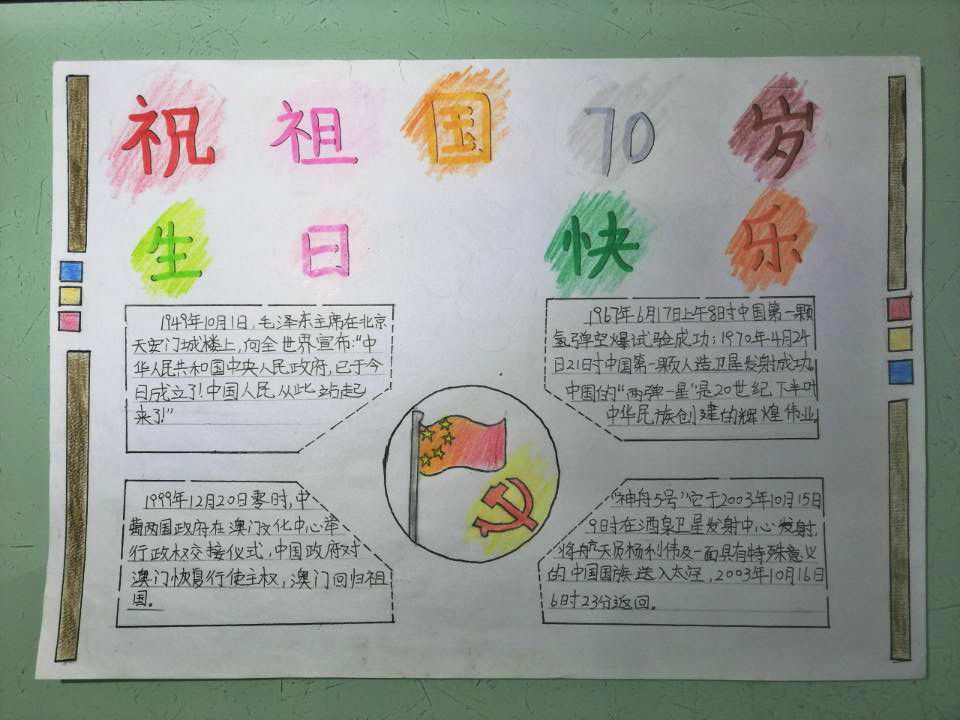 祝祖国70岁
生日快乐
1949年10月1日，毛泽东主席在北京
天安门城楼上，向全世界宣布："中
华人民共和国中央人民政府，已于今
日成立了！中国人民从此站起
来了！"
1967年6月17日上午8时中国第一颗
氢弹空爆试验成功；1970年4月24
日21时中国第一颗人造卫星发射成功。
中国的"两弹一星"是20世纪下半叶
中华民族创建的辉煌伟业。
1999年12月20日零时，中
葡两国政府在澳门文化中心举
行政权交接仪式，中国政府对
澳门恢复行使主权，澳门回归祖
国。
"神舟5号"它于2003年10月15日
9时在酒泉卫星发射中心发射，
将航天员杨利伟及一面具有特殊意义
的中国国旗送入太空，2003年10月16日
6时23分返回。